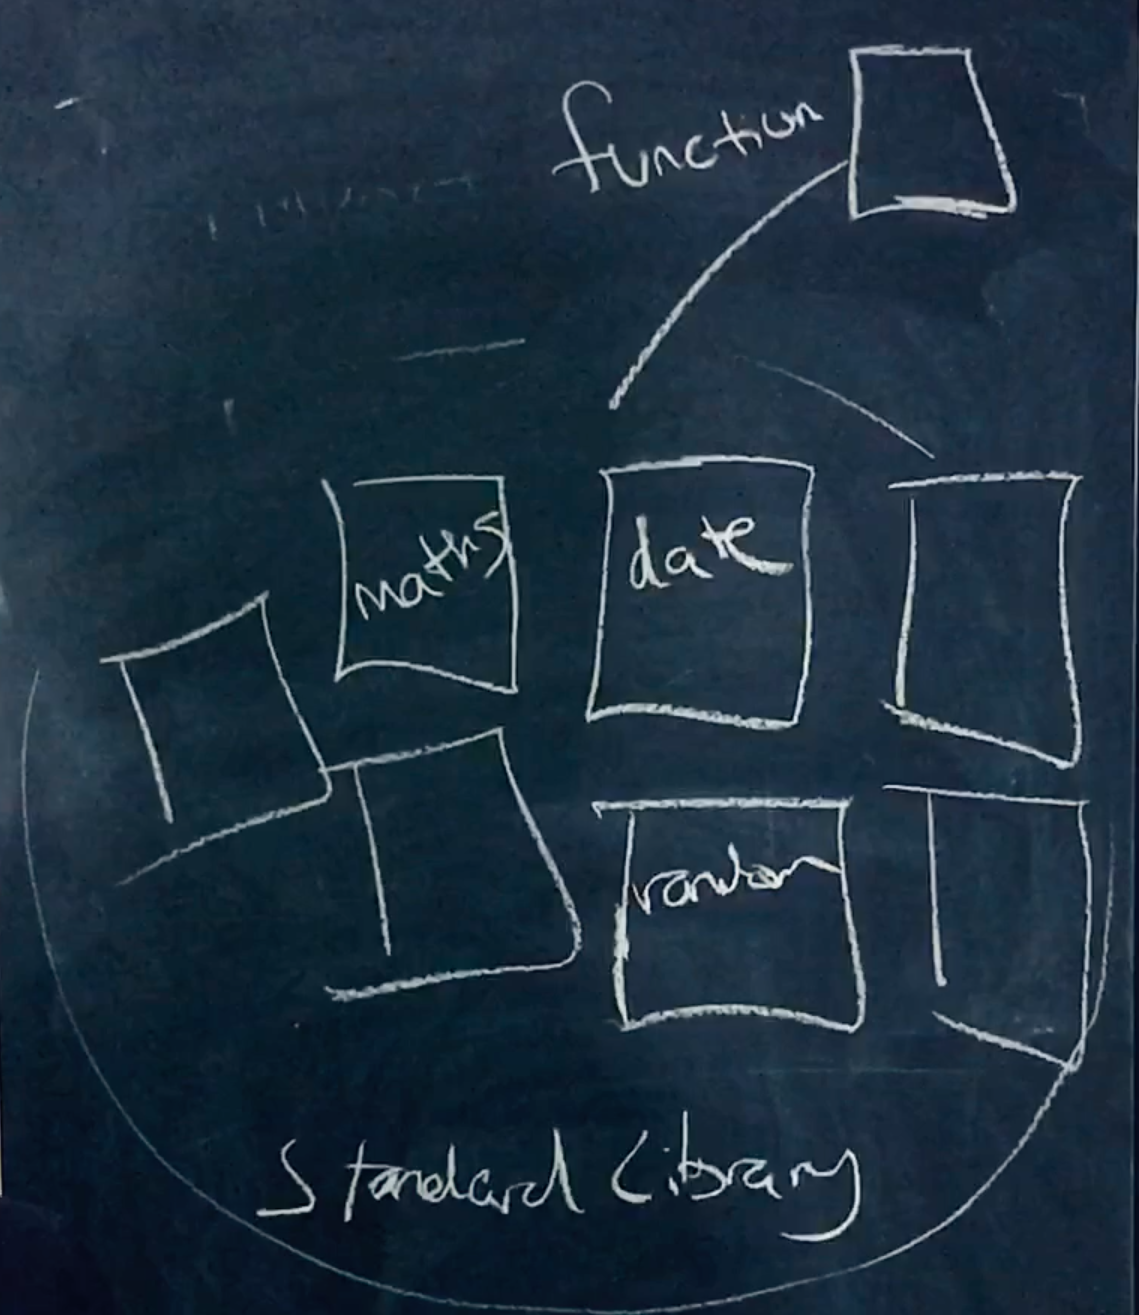 function
maths
date
random
Standard Library